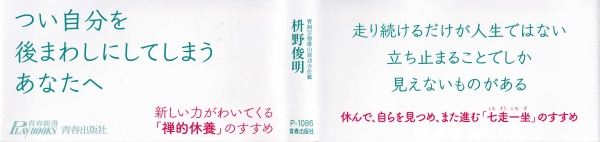 つい自分を
後まわしにしてしまう
あなたへ
新しい力がわいてくる
「禅的休養」のすすめ
青春新書
PLAYBOOKS
青春出版社
曹洞宗徳雄山建功寺住職
枡野俊明
P-1086
青春出版社
走り続けるだけが人生ではない
立ち止まることでしか
見えないものがある
休んで、自らを見つめ、また進む「七走一坐」のすすめ
しちそういちざ